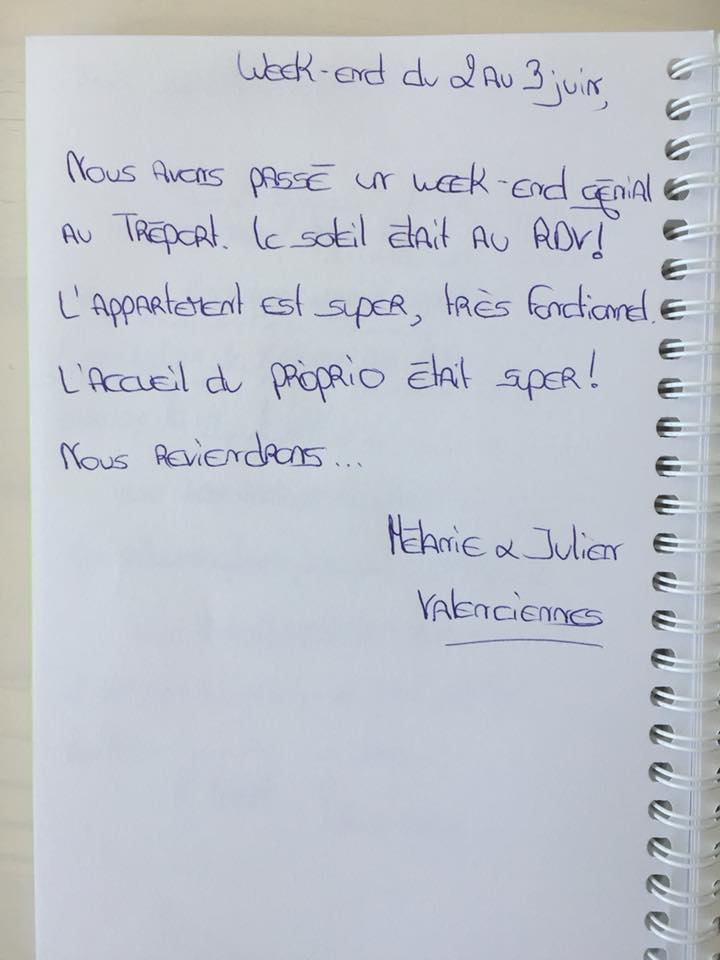 Week-end du 2 au 3 juin,
Nous avons passé un week-end génial
au Tréport. Le soleil était au RDV!
L'appartement est super, très fonctionnel.
L'accueil du proprio était super!
Nous reviendrons...
Mélanie & Julien
Valenciennes